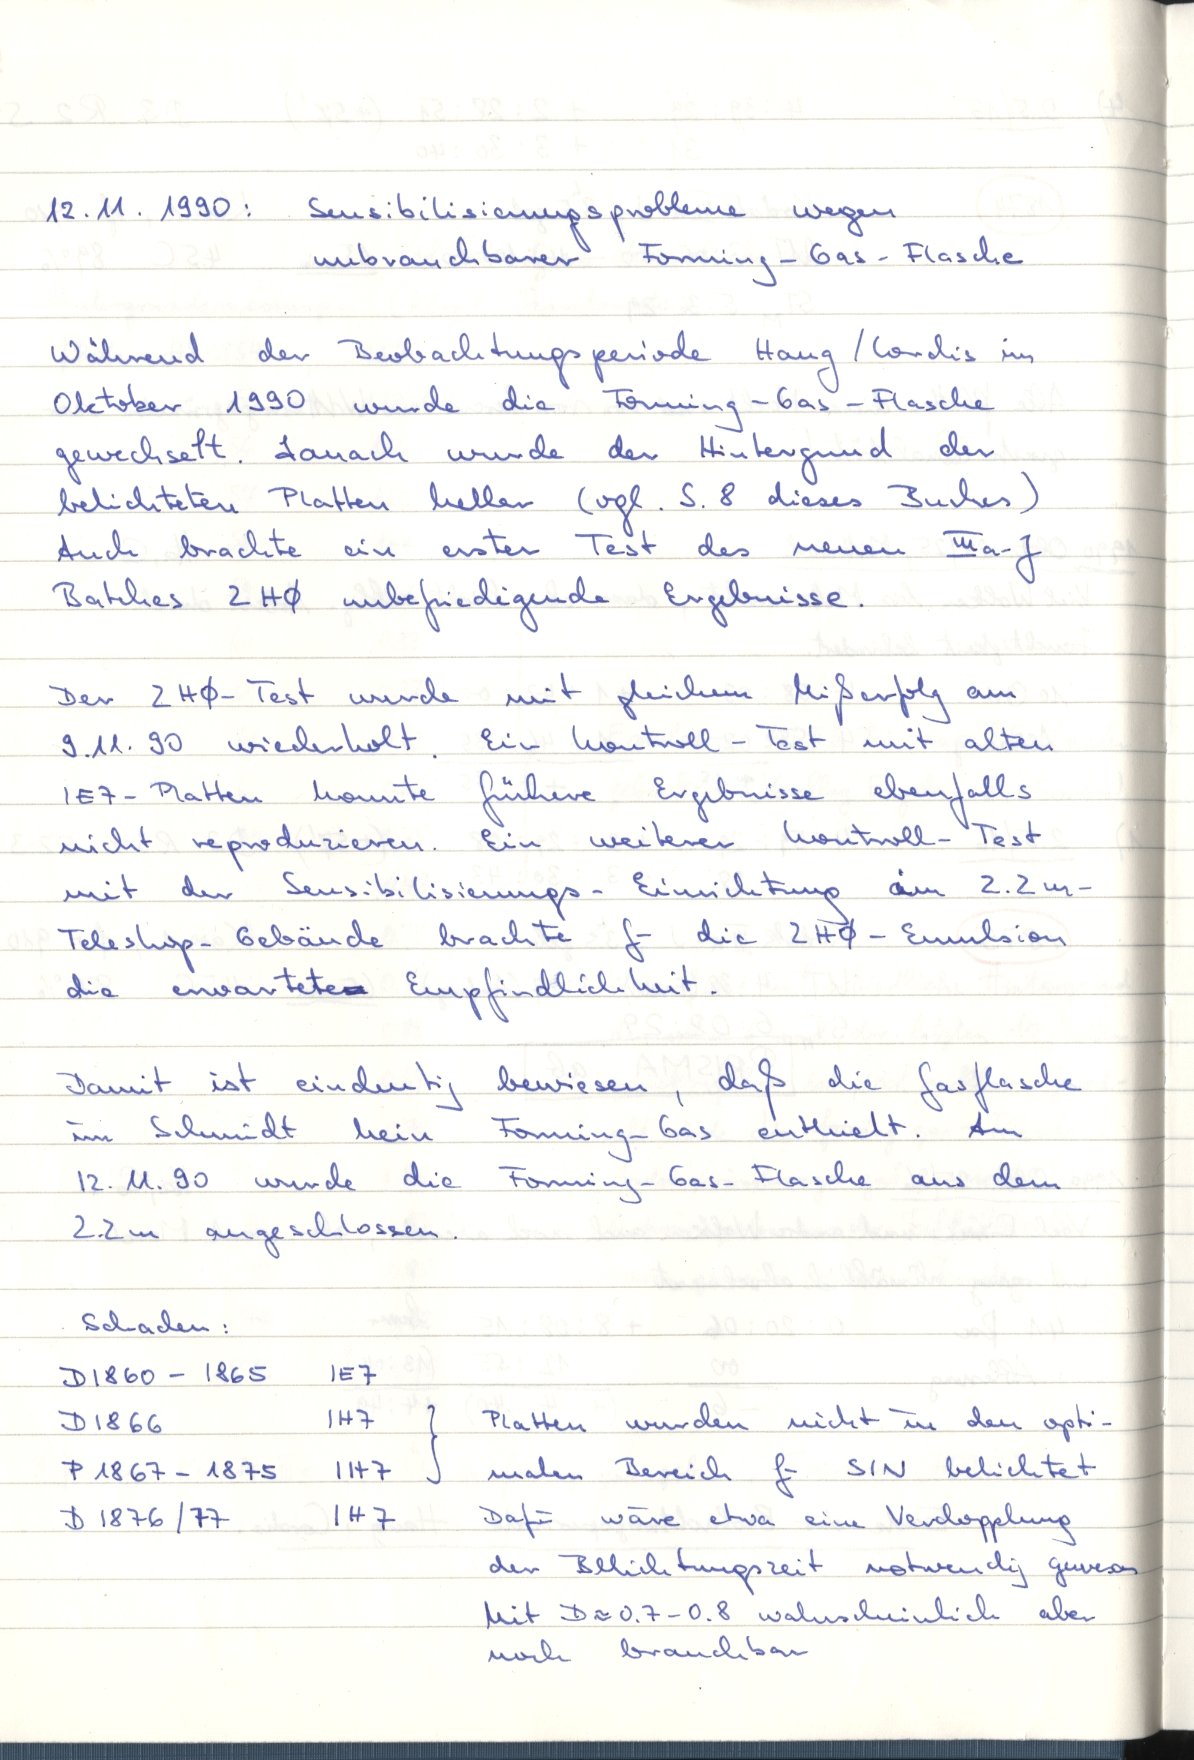 12.11.1990: Sensibilisierungsprobleme wegen
unbrauchbarer Forming-Gas-Flasche
Während der Beobachtungsperiode Haug/Cordis im
Oktober 1990 wurde die Forming-Gas-Flasche
gewechselt. Danach wurde der Hintergrund der
belichteten Platten heller (vgl. S. 8 dieses Buches)
Auch brachte ein erster Test des neuen IIIa-J
Batches 2HØ unbefriedigende Ergebnisse.
Der 2HØ-Test wurde mit gleichem Mißerfolg am
9.11.90 wiederholt. Ein Kontroll-Test mit alten
1E7-Platten konnte frühere Ergebnisse ebenfalls
nicht reproduzieren. Ein weiterer Kontroll-Test
mit der Sensibilisierungs-Einrichtung im 2.2m-
Teleskop-Gebäude brachte f- die 2HØ-Emulsion
die erwartete Empfindlichkeit.
Damit ist eindeutig bewiesen, daß die Gasflasche
im Schmidt kein Forming-Gas enthielt. Am
12.11.90 wurde die Forming-Gas-Flasche aus dem
2.2m angeschlossen.
Schaden:
D1860-1865 1E7
D1866 1H7 } Platten wurden nicht in den opti-
P1867-1875 1H7 malen Bereich f- S/N belichtet
D1876/77 1H7 Dafür wäre etwa eine Verdopplung
der Belichtungszeit notwendig gewesen
Mit D≈0.7-0.8 wahrscheinlich aber
noch brauchbar